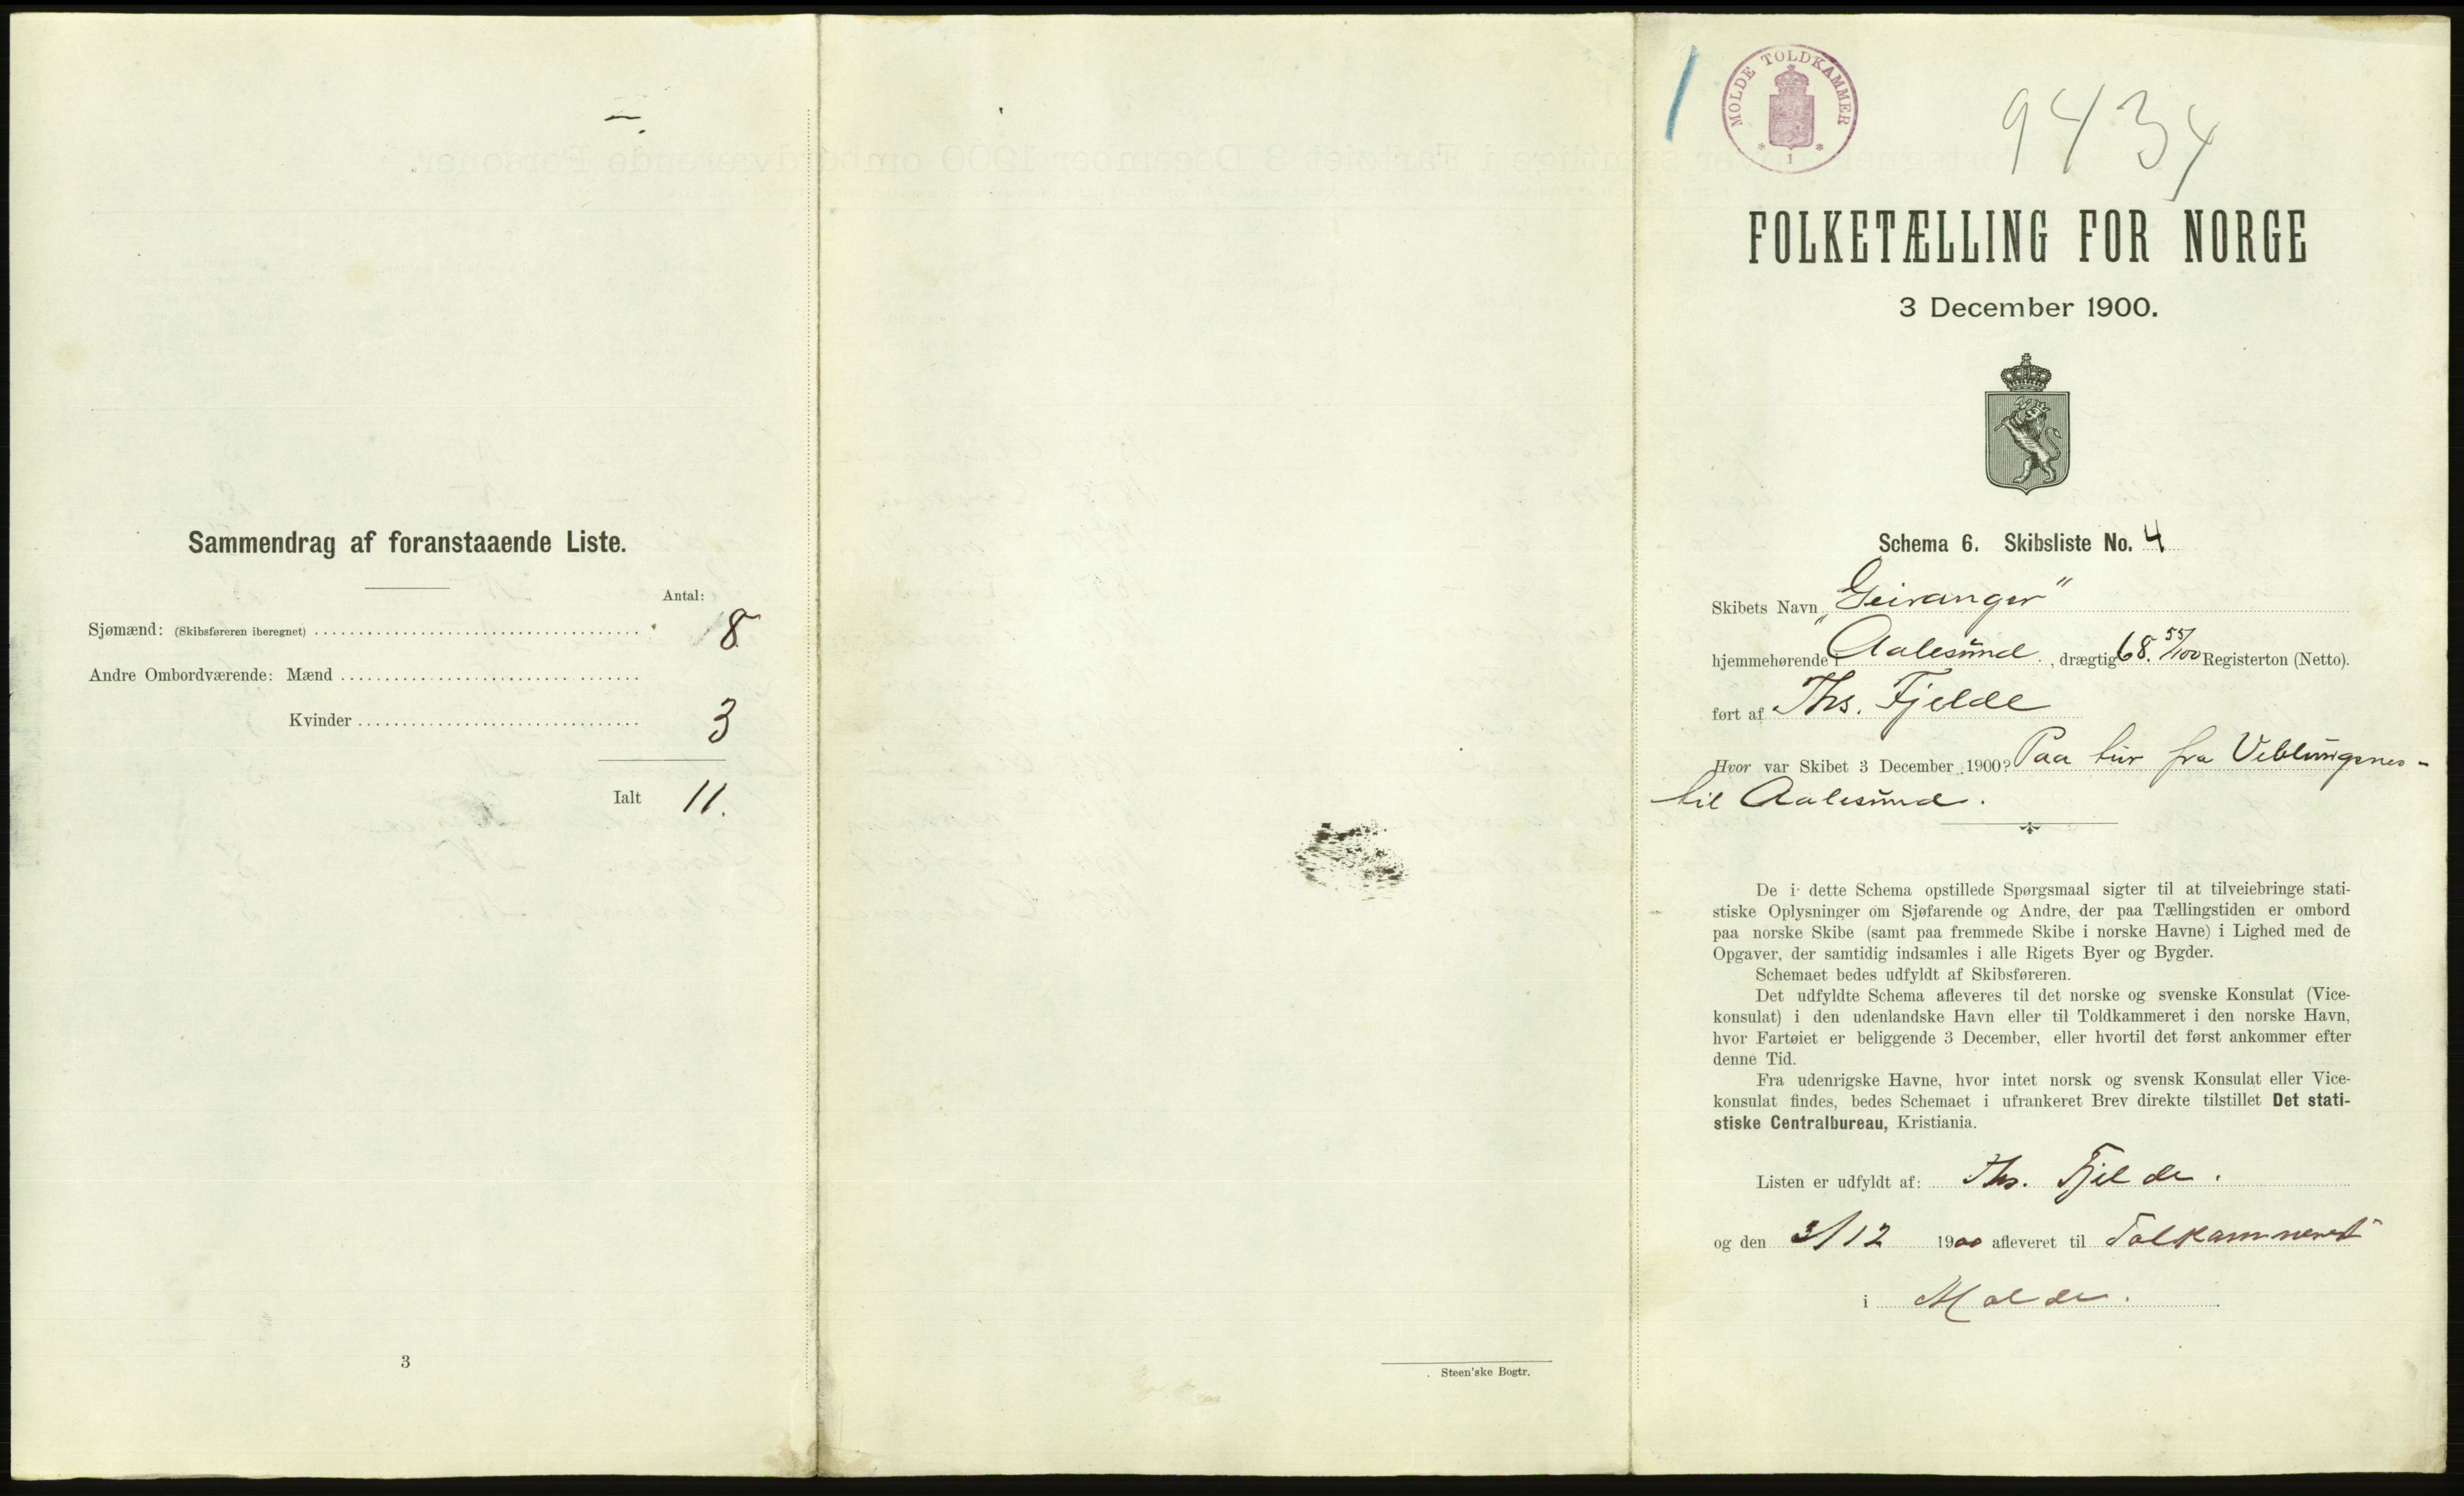 Sammendrag af foranstaaende Liste.
Antal:
Sjømænd: (Skibsføreren iberegnet) 8
Andre Ombordværende: Mænd
Kvinder 3
Ialt 11.
3
Steen'ske Bogtr.
1
MOLDE TOLDKAMMER
* 1 *
9434
FOLKETÆLLING FOR NORGE
3 December 1900.
Schema 6. Skibsliste No. 4
Skibets Navn „Geiranger"
hjemmehørende i Aalesund, drægtig 68.55/100 Registerton (Netto).
ført af Ths. Fjelde
Hvor var Skibet 3 December 1900? Paa tur fra Veblungsnes -
til Aalesund.
De i dette Schema opstillede Spørgsmaal sigter til at tilveiebringe stati-
stiske Oplysninger om Sjøfarende og Andre, der paa Tællingstiden er ombord
paa norske Skibe (samt paa fremmede Skibe i norske Havne) i Lighed med de
Opgaver, der samtidig indsamles i alle Rigets Byer og Bygder.
Schemaet bedes udfyldt af Skibsføreren.
Det udfyldte Schema afleveres til det norske og svenske Konsulat (Vice-
konsulat) i den udenlandske Havn eller til Toldkammeret i den norske Havn,
hvor Fartøiet er beliggende 3 December, eller hvortil det først ankommer efter
denne Tid.
Fra udenrigske Havne, hvor intet norsk og svensk Konsulat eller Vice-
konsulat findes, bedes Schemaet i ufrankeret Brev direkte tilstillet Det stati-
stiske Centralbureau, Kristiania.
Listen er udfyldt af: Ths. Fjelde.
og den 3/12 1900 afleveret til Tolkammeret
i Molde.